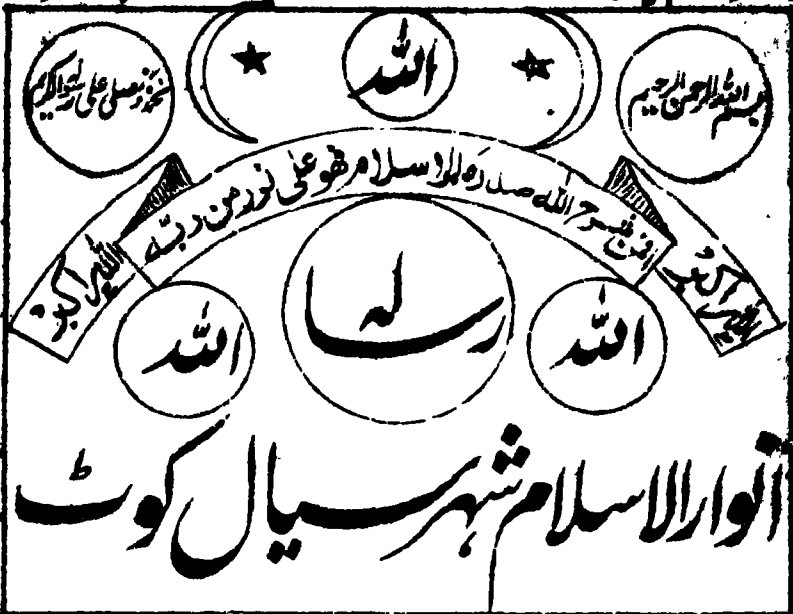 بسم اللہ الرحمن الرحیم
اللہ
نحمدہ ونصلی علی رسولہ الکریم
افمن شرح اللہ صدرہ للاسلام فھو علی نور من ربہ
اللہ اکبر
اللہ اکبر
اللہ
رسالہ
اللہ
انوار الاسلام شہر سیال کوٹ